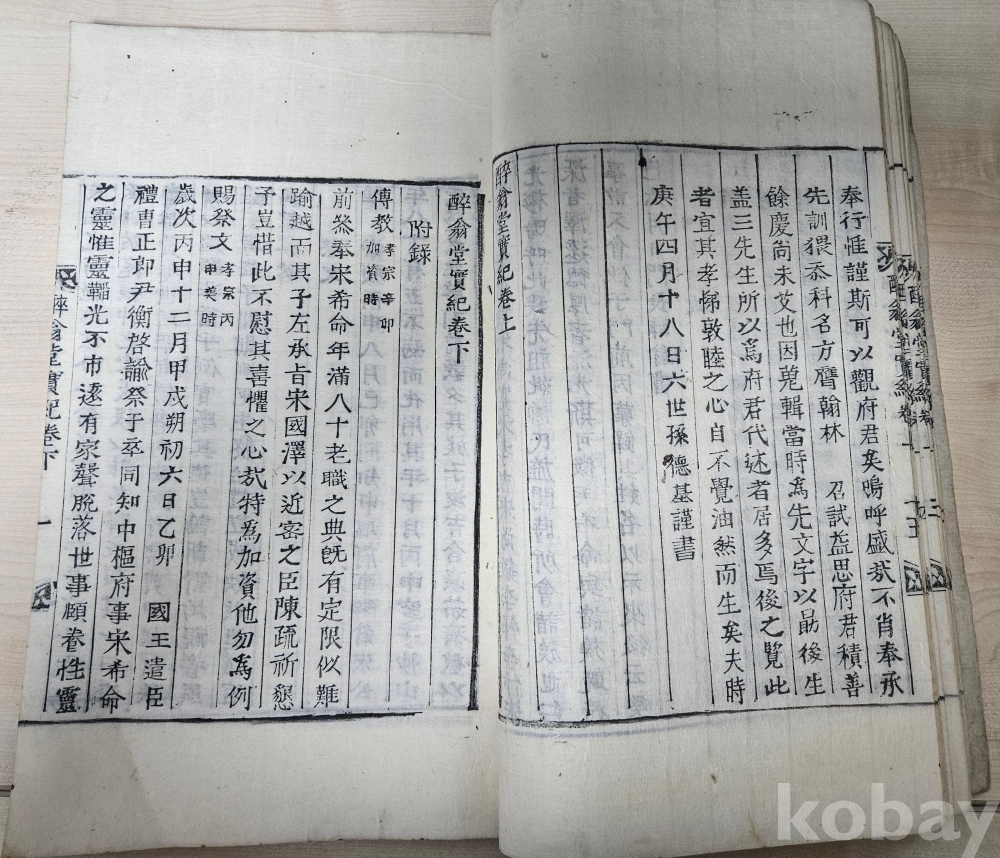 奉行惟謹斯可以觀府君矣嗚呼盛哉不肖奉承
先訓猥忝科名方膺翰林 召試益思府君積善
餘慶尙未艾也因蒐輯當時爲先文字以勗後生
盖三先生所以爲府君代述者居多焉後之覽此
者宜其孝悌敦睦之心自不覺油然而生矣夫時
庚午四月十八日六世孫德基謹書
醉翁堂實紀卷上
醉翁堂實紀卷下
附錄
傳敎 孝宗辛卯加資時
前叅奉宋希命年滿八十老職之典旣有定限似難
踰越而其子左承旨宋國澤以近密之臣陳疏祈懇
子豈惜此不慰其喜懼之心哉特爲加資他勿爲例
賜祭文 孝宗丙申葬時
歲次丙申十二月甲戌朔初六日乙卯 國王遣臣
禮曹正郎尹衡啓諭祭于卒同知中樞府事宋希命
之靈惟靈韜光不市遂有家聲脫落世事頤養性靈
醉翁堂實紀卷下 一
kobay